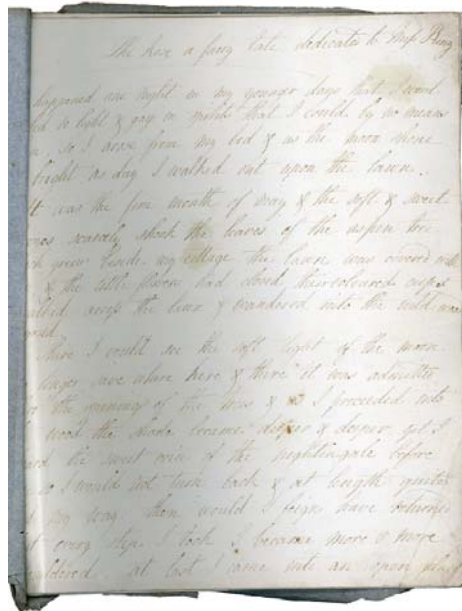 The Rose a fairy tale dedicated to Miss King
happened one night in my younger days that I went
bed so light & gay in spirits that I could by no means
so I arose from my bed & as the moon shone
bright as day I walked out upon the lawn.
It was the fine month of May & the soft & sweet
scarcely shook the leaves of the aspen tree
grew beside my cottage the lawn was covered with
& the little flowers had closed their coloured cups
across the lawn & wandered into the wild
Here I could see the soft light of the moon
longer save where here & there it was admitted
the openings of the trees & as I proceeded into
wood the shade became deeper & deeper yet I
heard the sweet voice of the nightingale before
so I would not turn back & at length quite
my way. then would I feign have returned
every step I took I became more & more
at last I came into an open place